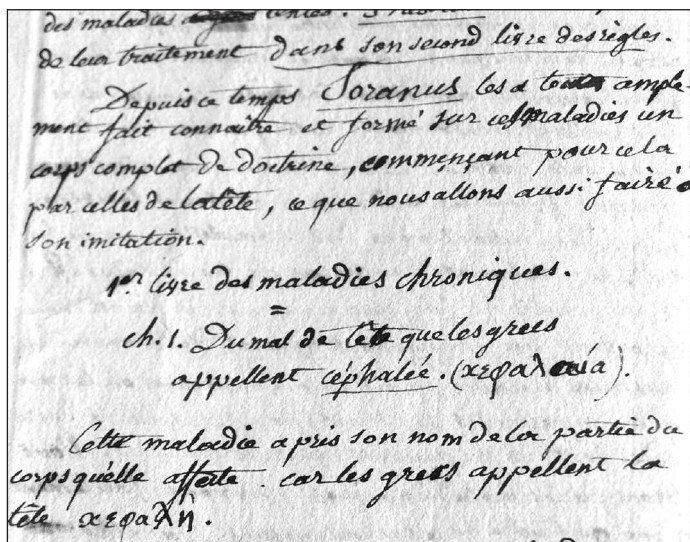 des maladies lentes.
de leur traitement dans son second livre des règles.
Depuis ce temps Soranus les a ample-
ment fait connaître et formé sur ces maladies un
corps complet de doctrine, commençant pour cela
par celles de la tête, ce que nous allons aussi faire à
son imitation.
1er livre des maladies chroniques.
=
ch. 1. Du mal de tête que les grecs
appellent céphalée. (χεφαλαιά).
Cette maladie a pris son nom de la partie du
corps qu'elle affecte. car les grecs appellent la
tête χεφαλὴ.